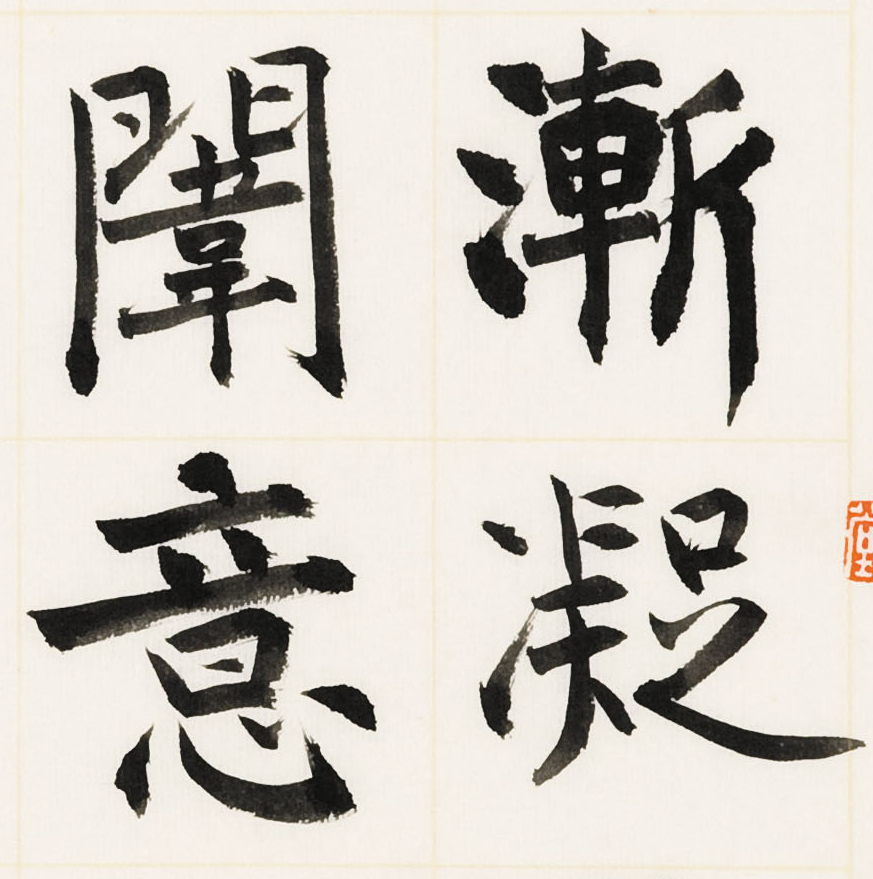 漸凝
闈意